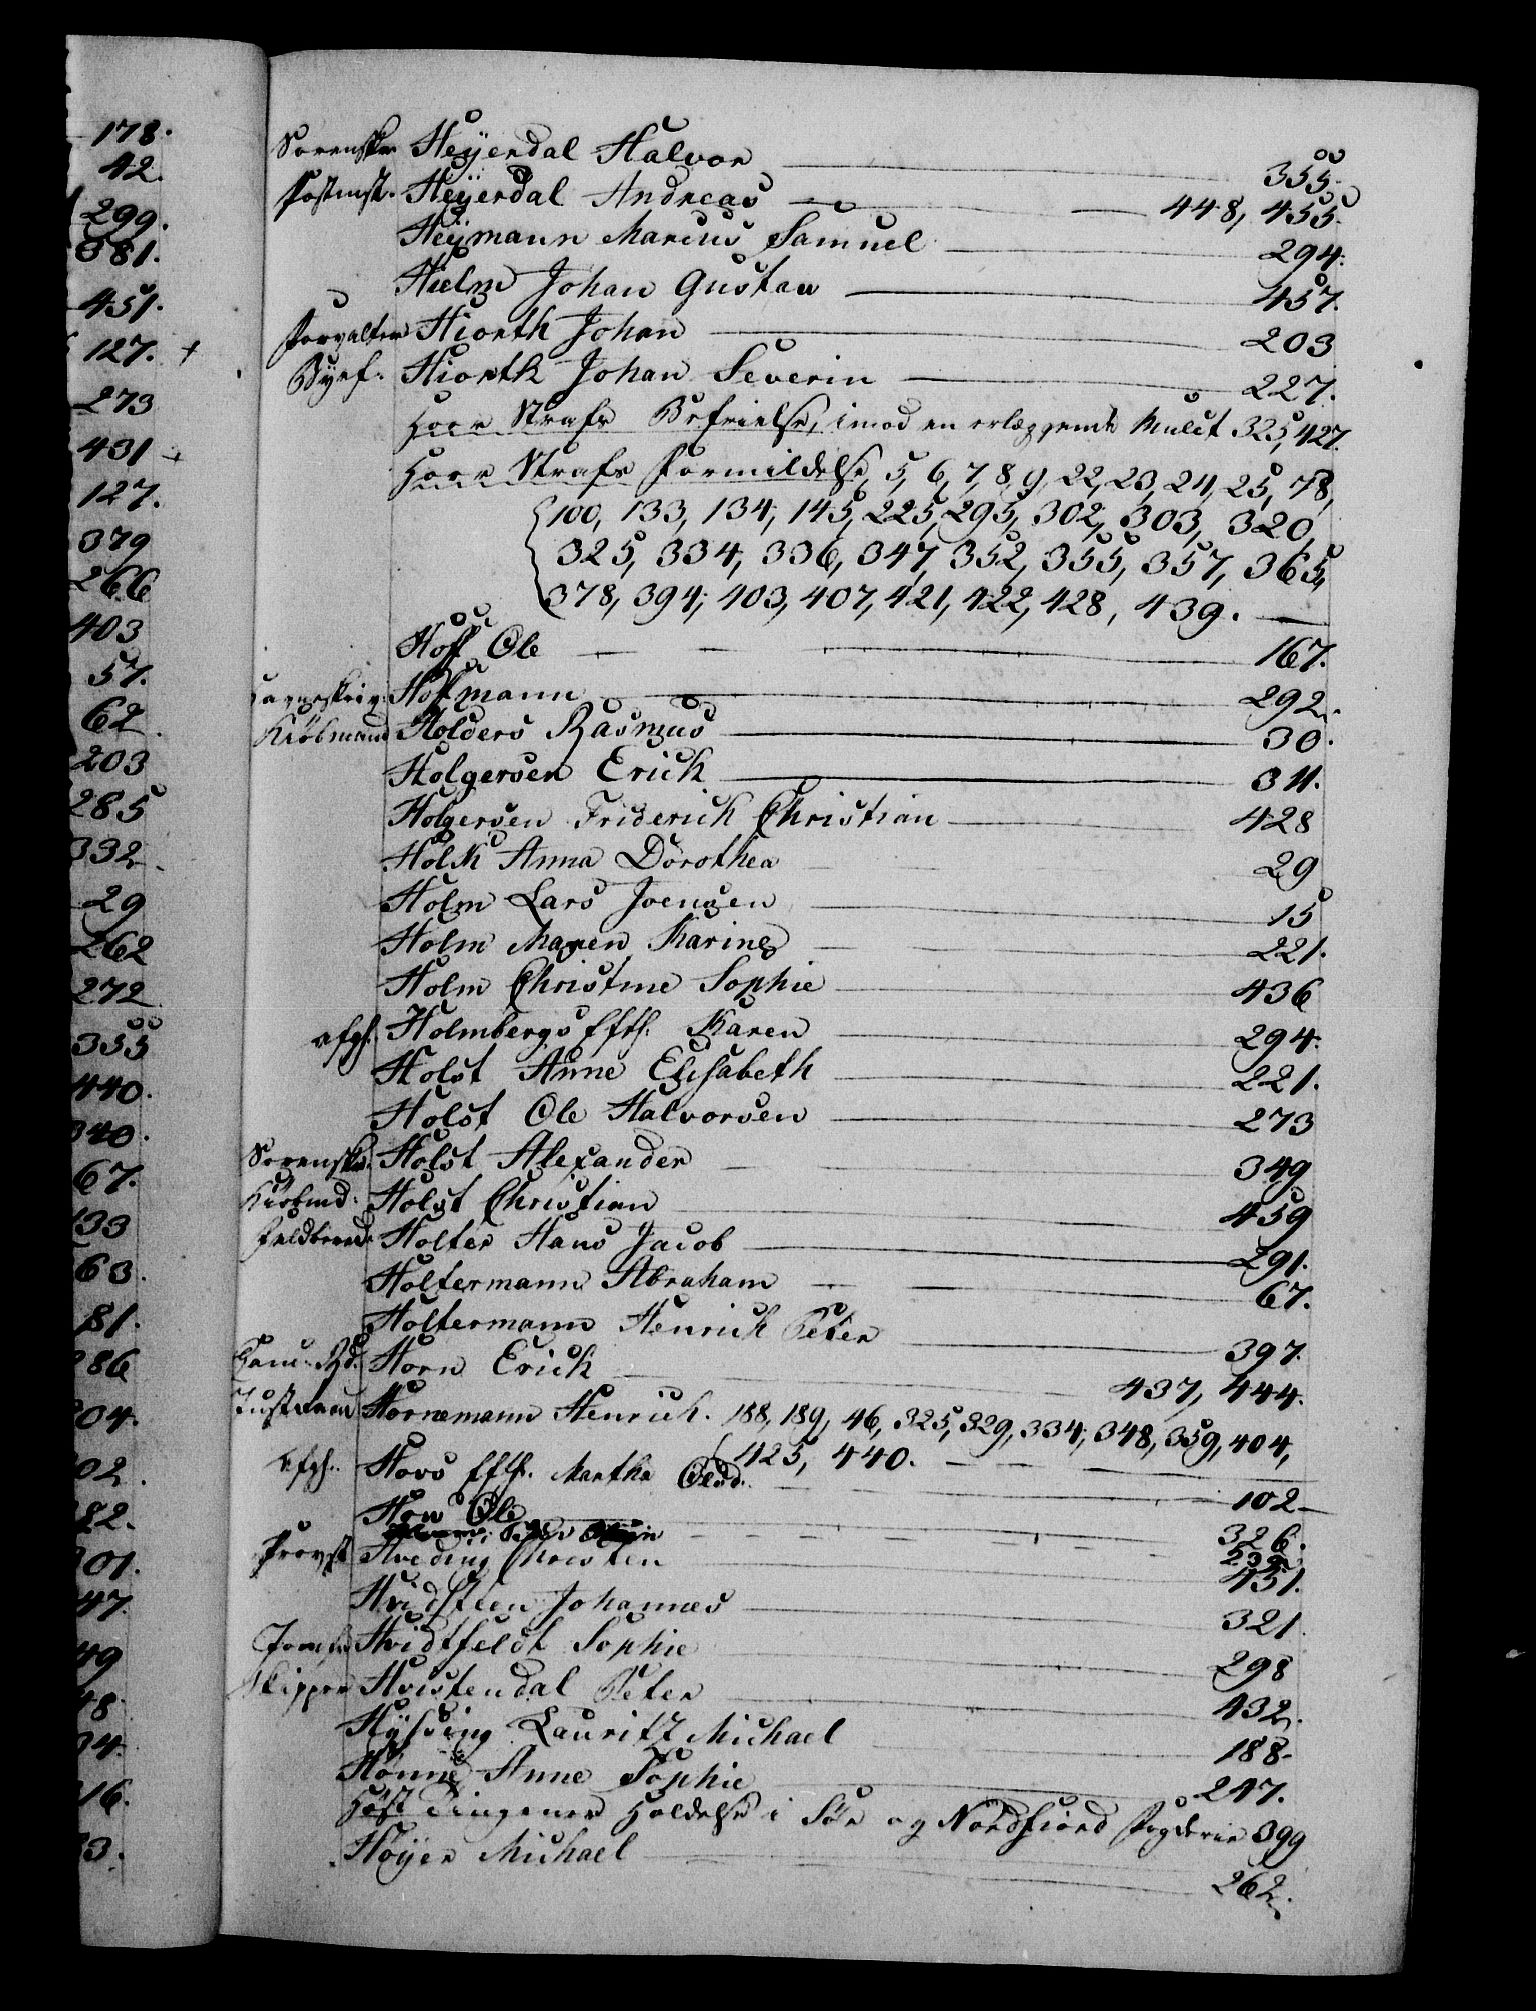 178.
42.
299.
381.
451.
127. +
273
431 +
127.
379
266
403
57.
62.
203
285
332
29
262
272
355
440.
340.
67.
133
63.
81.
286
204.
02.
22.
01.
47.
49
48
04.
16.
3.
Sorenskr Heÿerdal Halvor 355.
Postmst. Heÿerdal Andreas 448, 455.
Heÿmann Marcus Samuel 294.
Hielm Johan Gustav 457.
Forvalter Hiorth Johan 203
Byef. Hiorth Johan Severin 227.
Hoer Strafs Befrielse, imod en erlæggende Mulct 325, 427.
Hoer Strafs Formildelse, 5, 6, 7, 8, 9, 22, 23, 24, 25, 78,
100, 133, 134, 145, 225, 295, 302, 303, 320,
325, 334, 336, 347, 352, 355, 357, 365,
378, 394, 403, 407, 421, 422, 428, 439.
Hoff Ole 167.
Hoffmann 292.
Kiöbmand Holders Rasmus 30.
Holgersen Erick 311.
Holgersen Friderich Christian 428
Holk Anna Dorothea 29
Holm Lars Joensen 15
Holm Maren Karine 221.
Holm Christine Sophie 436
afgl. Holmbergs Efth. Karen 294.
Holst Anne Elisabeth 221.
Holst Ole Halvorsen 273
Sorenskr. Holst Alexander 349
Kiöbmd. Holst Christian 459
Feldbered Holter Hans Jacob 291.
Holtermann Abraham 67.
Holtermann Henrich Peter 397.
Cam: Rd. Horn Erick 437, 444.
Justitsraad Hornemann Henrich. 188, 189, 46, 325, 329, 334, 348, 359, 404,
425, 440.
afgl. Hovs Efth. Marthe Olsd. 102
How Ole 326.
239.
Provst Hveding Christen 451.
Hvidsteen Johannes 321
Jomfr Hvidtfeldt Sophie 298
Skipper Hvistendal Peter 432.
Hÿsing Lauritz Michael 188.
Hönne Anne Sophie 247.
Höst Tingenes Holdelse i Sör og Nordfiord Fogderie 399
Höÿer Michael 262.